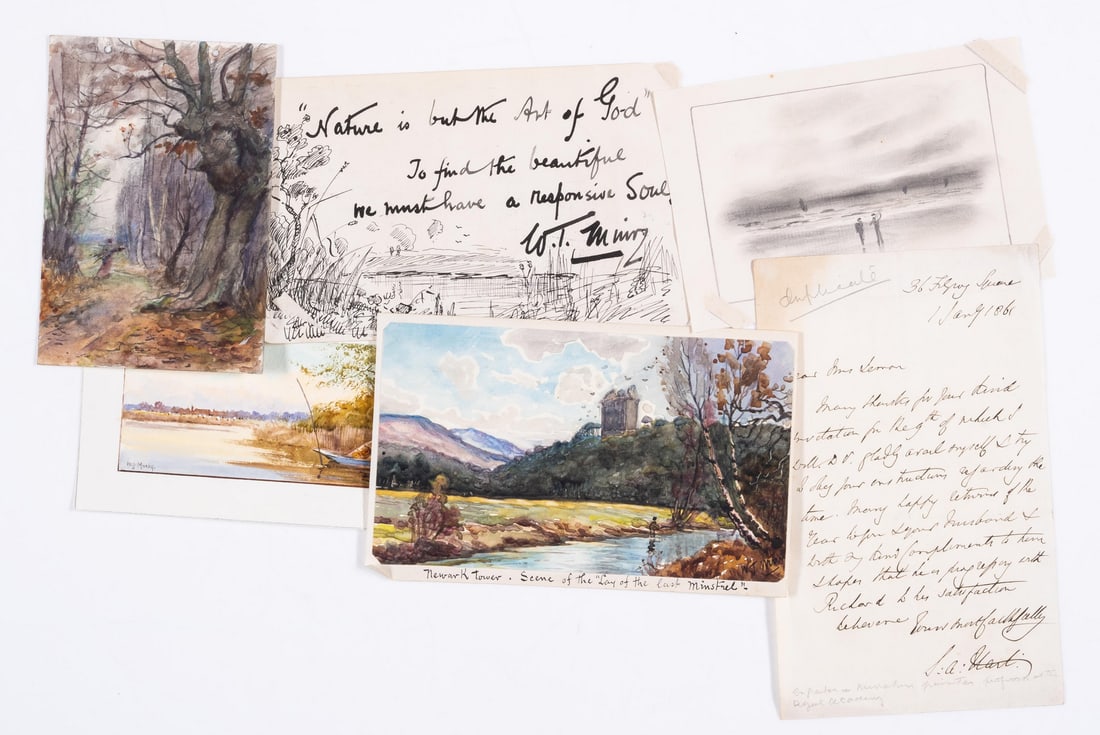 "Nature is but the Art of God"
To find the beautiful
we must have a responsive Soul.
W.T. Muirg
W.J. Muirg
Newark tower. Scene of the "Lay of the last Minstrel".
duplicate
36 Fitzroy Square
1 Jan 1861
ear Mrs Lemon
Many thanks for your kind
vitation for the 9th of which I
will D.V. gladly avail myself & try
obey your instructions regarding the
time. Many happy returns of the
Year to you & your Husband &
with my kind compliments to him
that he is progressing with
Richard to his satisfaction
believe me Yours most faithfully
S: A: Hart:
painter professor at the
Royal Academy